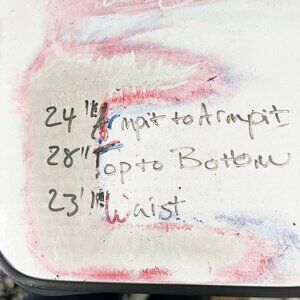 24" Armpit to Armpit
28" Top to Bottom
23" Waist